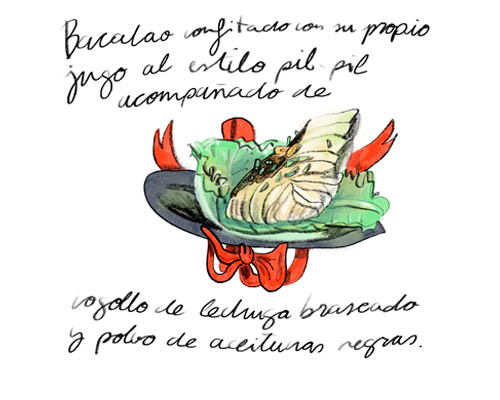 Bacalao confitado con su propio
jugo al estilo pil-pil
acompañado de
cogollo de lechuga braseado
y polvo de aceitunas negras.